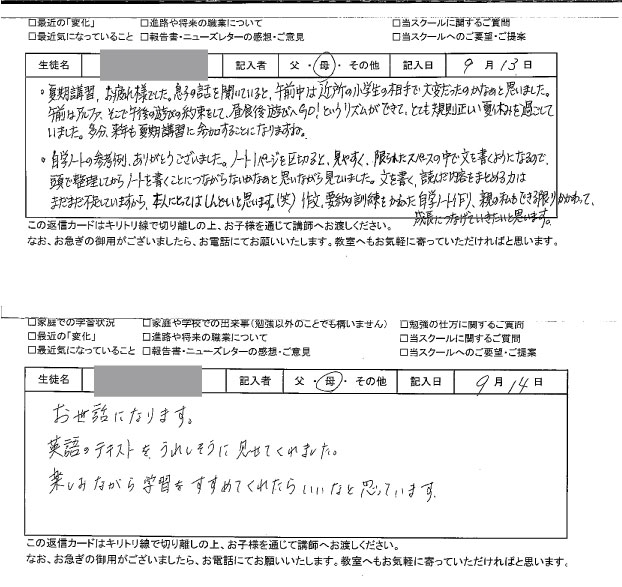 □最近の「変化」 □進路や将来の職業について □当スクールに関するご質問
□最近気になっていること □報告書・ニューズレターの感想・ご意見 □当スクールへのご要望・ご提案
生徒名 記入者 父・母・その他 記入日 9月13日
・夏期講習、お疲れ様でした。息子の話を聞いていると、午前中は近所の小学生の相手で大変だったのかなぁと思いました。
午前はアルファ、そこで午後の遊びの約束をして、昼食後遊びへGO!というリズムができて、とても規則正しい夏休みを過ごして
いました。多分、来年も夏期講習に参加することになりますかね。
・自学ノートの参考例、ありがとうございました。ノート1ページを区切ると、見やすく、限られたスペースの中で文を書くようになるので、
頭で整理してからノートを書くことにつながらないかなぁと思いながら見ていました。文を書く、読んだ内容をまとめる力は
まだまだ不足していますから、本人にとってはしんどいと思います。(笑) 作文、要約の訓練をかねた自学ノート作り、親の私もできる限りかかわって、
成長につなげていきたいと思います。
この返信カードはキリトリ線で切り離しの上、お子様を通じて講師へお渡しください。
なお、お急ぎの御用がございましたら、お電話にてお願いいたします。教室へもお気軽に寄っていただければと思います。
□家庭での学習状況 □家庭や学校での出来事(勉強以外のことでも構いません) □勉強の仕方に関するご質問
□最近の「変化」 □進路や将来の職業について □当スクールに関するご質問
□最近気になっていること □報告書・ニューズレターの感想・ご意見 □当スクールへのご要望・ご提案
生徒名 記入者 父・母・その他 記入日 9月14日
お世話になります。
英語のテキストを、うれしそうに見せてくれました。
楽しみながら学習をすすめてくれたらいいなと思っています。
この返信カードはキリトリ線で切り離しの上、お子様を通じて講師へお渡しください。
なお、お急ぎの御用がございましたら、お電話にてお願いいたします。教室へもお気軽に寄っていただければと思います。